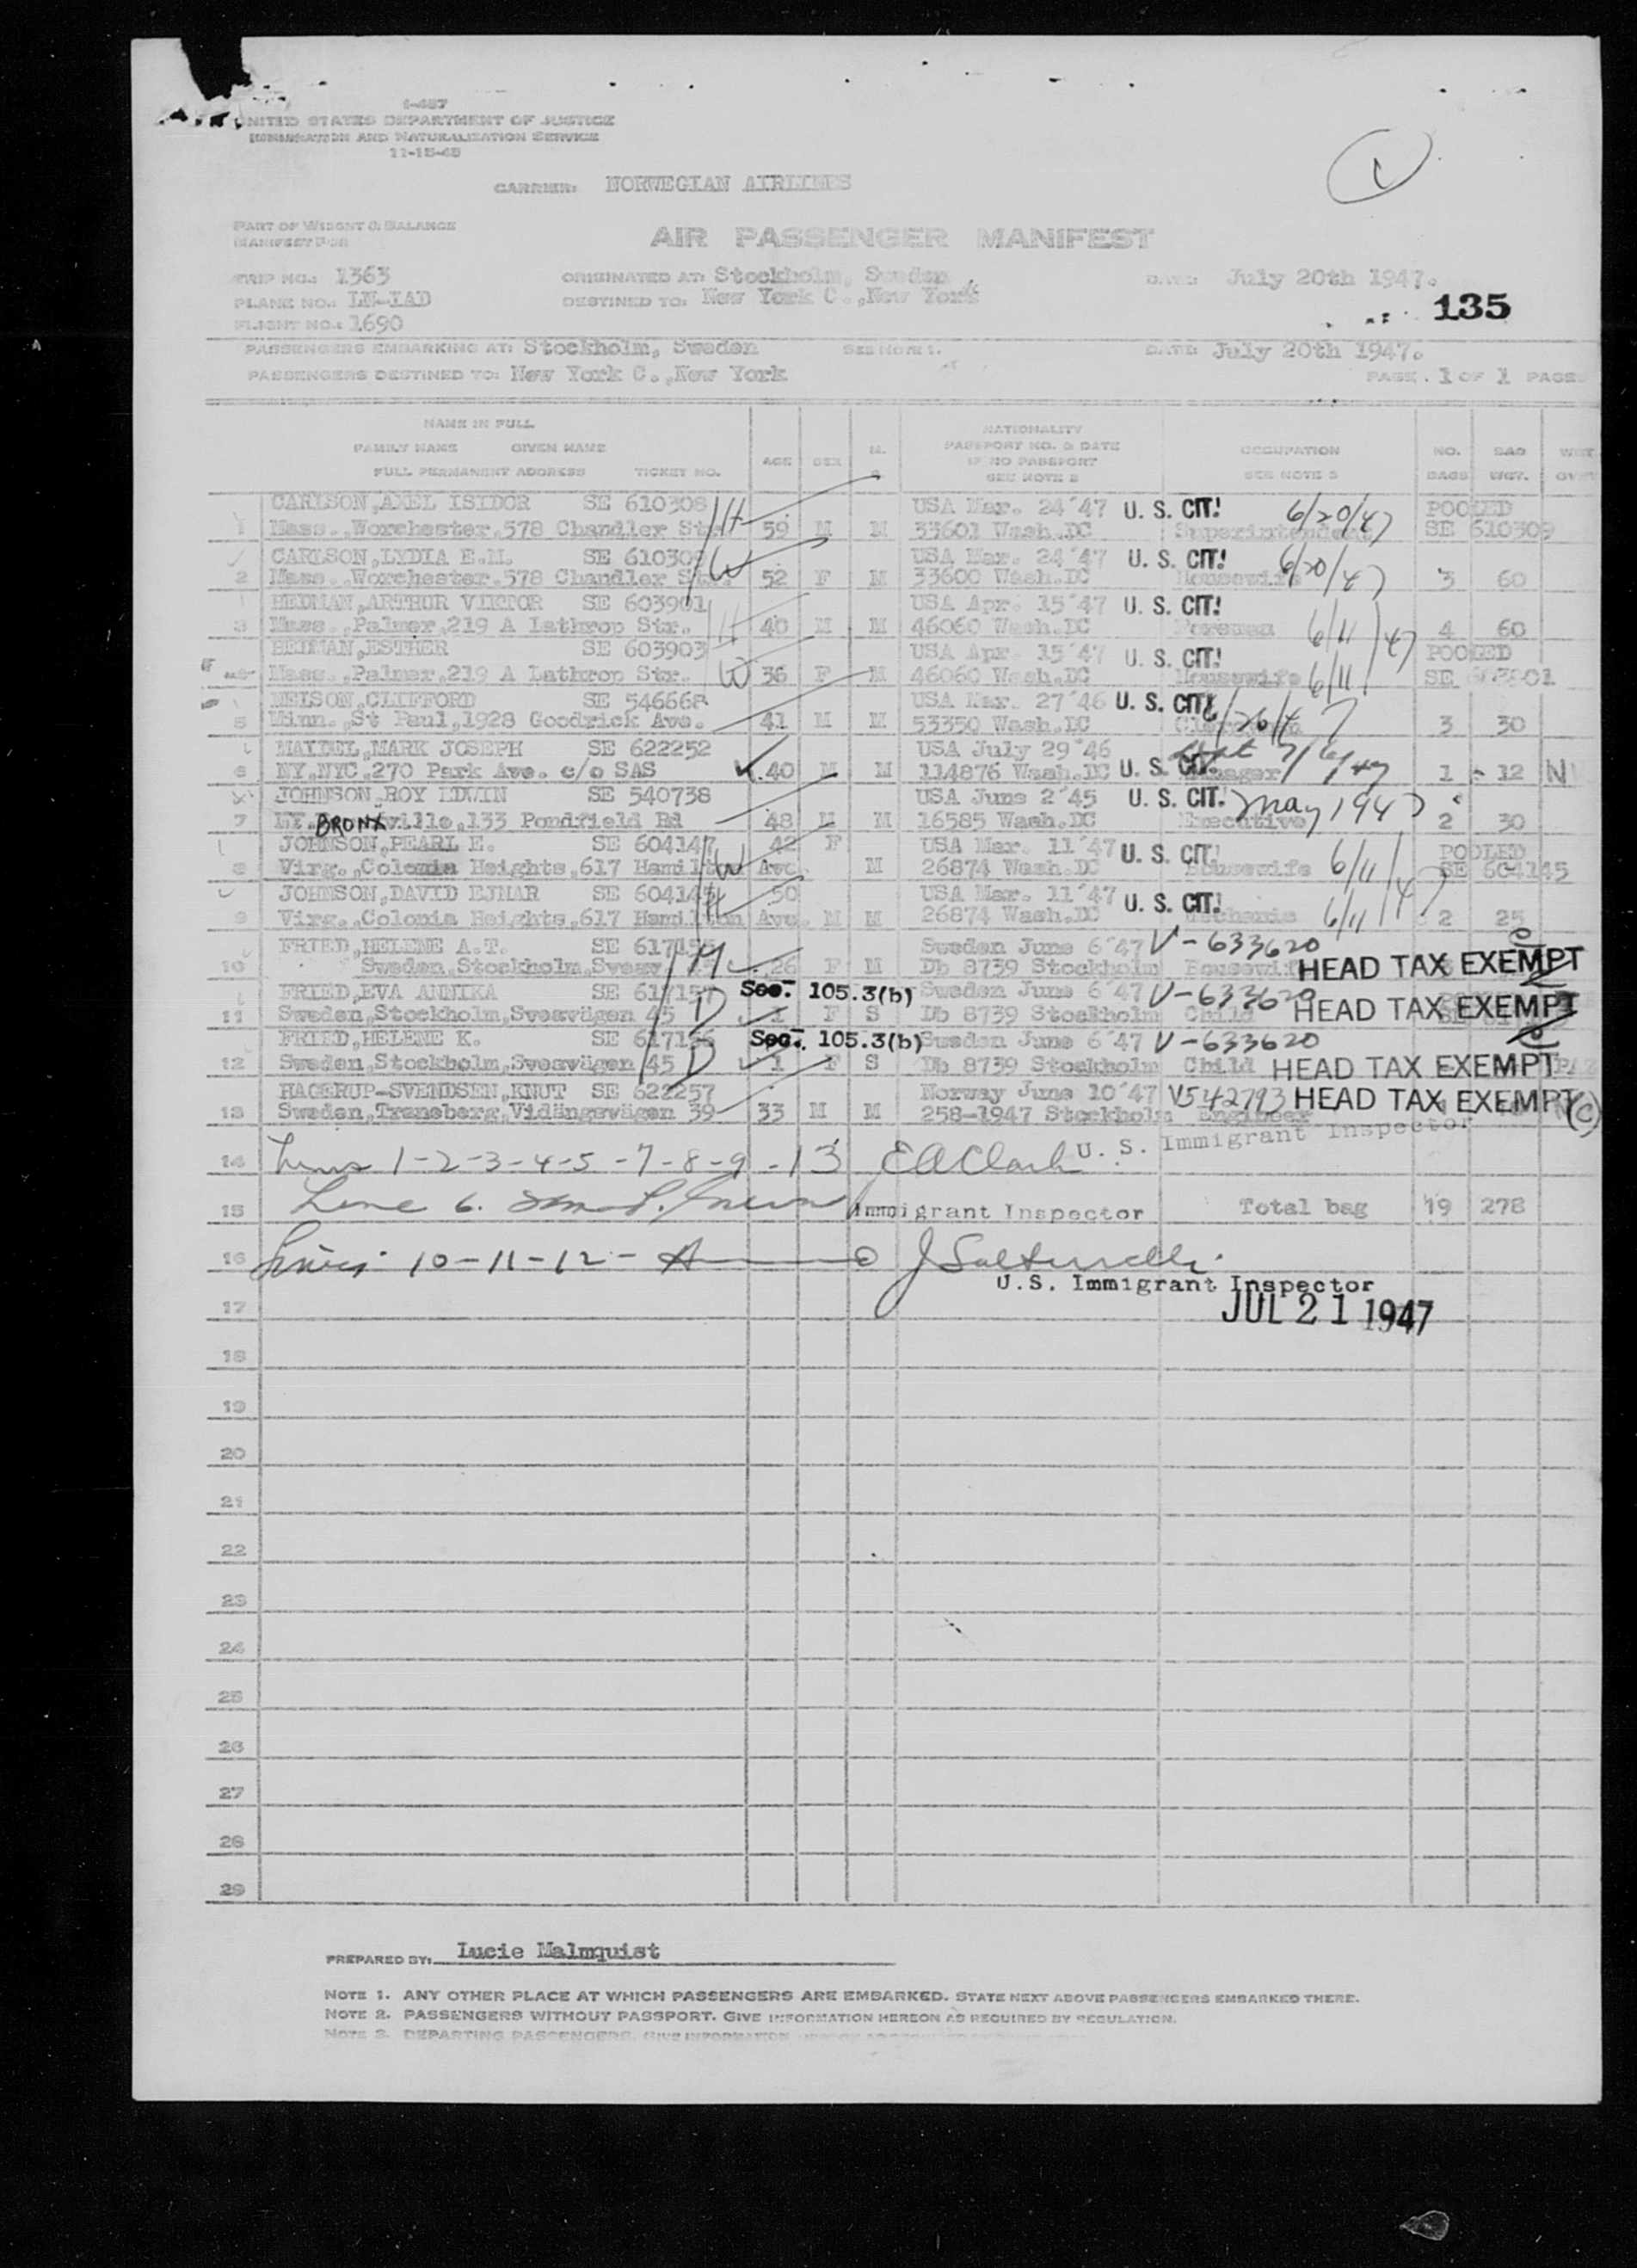 I-487
UNITED STATES DEPARTMENT OF JUSTICE
IMMIGRATION AND NATURALIZATION SERVICE
11-15-45
CARRIER: NORWEGIAN AIRLINES
PART OF WEIGHT & BALANCE
MANIFEST FOR
AIR PASSENGER MANIFEST
TRIP NO.: 1363 ORIGINATED AT: Stockholm, Sweden DATE: July 20th 1947.
PLANE NO.: LN-IAD DESTINED TO: New York C.,New York
135
FLIGHT NO.: 1690
PASSENGERS EMBARKING AT: Stockholm, Sweden SEE NOTE 1. DATE: July 20th 1947.
PASSENGERS DESTINED TO: New York C.,New York PAGE. 1 OF 1 PAGE
NAME IN FULL
FAMILY NAME GIVEN NAME
FULL PERMANENT ADDRESS TICKET NO. AGE SEX M. S NATIONALITY PASSPORT NO. & DATE IF NO PASSPORT SEE NOTE 2 OCCUPATION SEE NOTE 3 NO. BAGS BAG WGT.
CARLSON,AXEL ISIDOR SE 610308 H USA Mar. 24'47 U. S. CIT! 6/20/47 POOLED
1 Mass.,Worchester,578 Chandler Str. 59 M M 33601 Wash.DC Superintendent SE 610309
CARLSON,LYDIA E.M. SE 610309 W USA Mar. 24'47 U. S. CIT! 6/20/47
2 Mass.,Worchester.578 Chandler Str. 52 F M 33600 Wash.DC Housewife 3 60
HEDMAN,ARTHUR VIKTOR SE 603901 H USA Apr. 15'47 U. S. CIT!
3 Mass.,Palmer,219 A Lathrop Str. 40 M M 46060 Wash.DC Foreman 6/11/47 4 60
HEDMAN,ESTHER SE 603903 USA Apr. 15'47 U. S. CIT! POOLED
Mass.,Palmer,219 A Lathrop Str. W 36 F M 46060 Wash.DC Housewife 6/11 SE 603901
NELSON,CLIFFORD SE 546668 USA Mar. 27'46 U. S. CIT!
5 Minn.,St Paul,1928 Goodrick Ave. 41 M M 53350 Wash.DC 3 30
MAIDEL,MARK JOSEPH SE 622252 USA July 29'46
6 NY,NYC,270 Park Ave. c/o SAS 40 M M 114876 Wash.DC U. S. CIT. Manager 1 12
JOHNSON,ROY EDWIN SE 540738 USA June 2'45 U. S. CIT. May 1947
7 NY. BRONXville,133 Pondfield Rd 48 M M 16585 Wash.DC Executive 2 30
JOHNSON,PEARL E. SE 604147 42 F USA Mar. 11'47 U. S. CIT! POOLED
8 Virg.,Colonia Heights,617 Hamilton Ave. W M 26874 Wash.DC Housewife 6/11/47 SE 604145
JOHNSON,DAVID EJNAR SE 604145 H 50 USA Mar. 11'47 U. S. CIT!
9 Virg.,Colonia Heights,617 Hamilton Ave. M M 26874 Wash.DC Mechanic 6/11 2 25
FRIED,HELENE A.T. SE 617155 M Sweden June 6'47 V-633620
10 Sweden,Stockholm, 26 F M Db 8739 Stockholm Housewife HEAD TAX EXEMPT
FRIED,EVA ANNIKA SE 617157 Sec. 105.3(b) Sweden June 6'47 V-633620 HEAD TAX EXEMPT
11 Sweden,Stockholm,Sveavägen 45 D 1 F S Db 8739 Stockholm Child
FRIED,HELENE K. SE 617156 Sec. 105.3(b) Sweden June 6'47 V-633620
12 Sweden,Stockholm,Sveavägen 45 D 1 F S Db 8739 Stockholm Child HEAD TAX EXEMPT
HAGERUP-SVENDSEN,KNUT SE 622257 Norway June 10'47 V542793 HEAD TAX EXEMPT (C)
13 Sweden,Traneberg,Vidängsvägen 39 33 M M 258-1947 Stockholm Engineer
14 Lines 1-2-3-4-5-7-8-9-13 EAClark U. S. Immigrant Inspector
15 Line 6. Immigrant Inspector Total bag 19 278
16 Lines 10-11-12- A
U.S. Immigrant Inspector
17 JUL 21 1947
18
19
20
21
22
23
24
25
26
27
28
29
PREPARED BY: Lucie Malmquist
NOTE 1. ANY OTHER PLACE AT WHICH PASSENGERS ARE EMBARKED. STATE NEXT ABOVE PASSENGERS EMBARKED THERE.
NOTE 2. PASSENGERS WITHOUT PASSPORT. GIVE INFORMATION HEREON AS REQUIRED BY REGULATION.
NOTE 3. DEPARTING PASSENGERS. GIVE INFORMATION